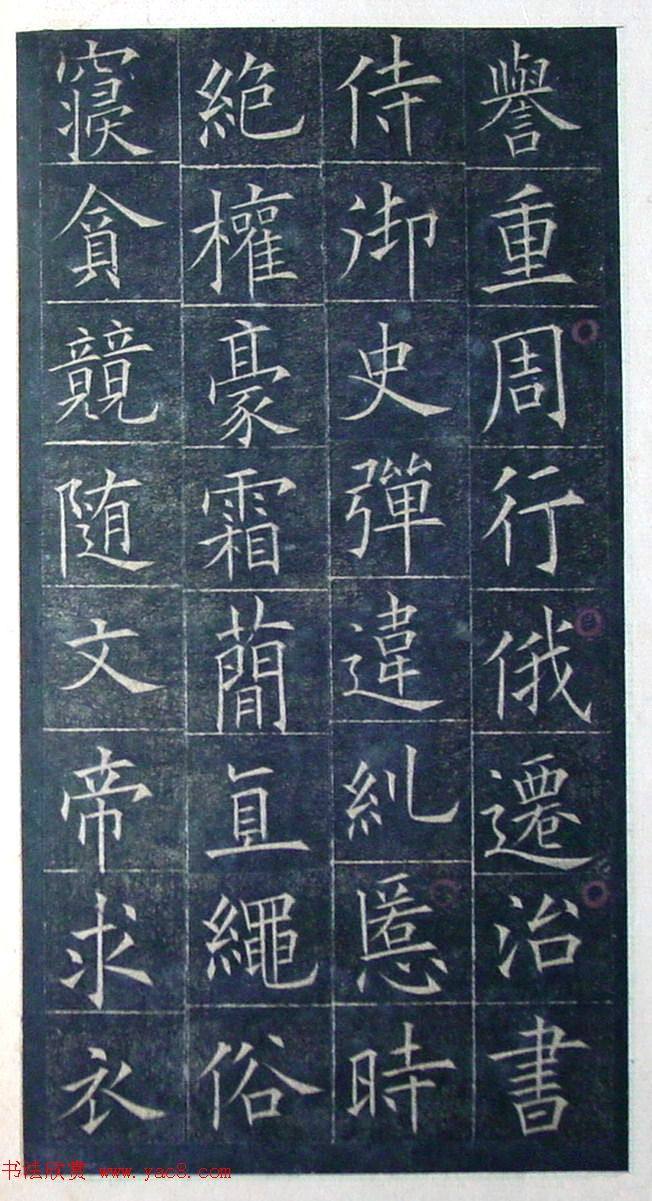 譽重周行俄遷治書
侍御史彈違糺慝時
絶權豪霜簡直繩俗
寢貪競随文帝求衣
书法欣赏 www.yac8.com